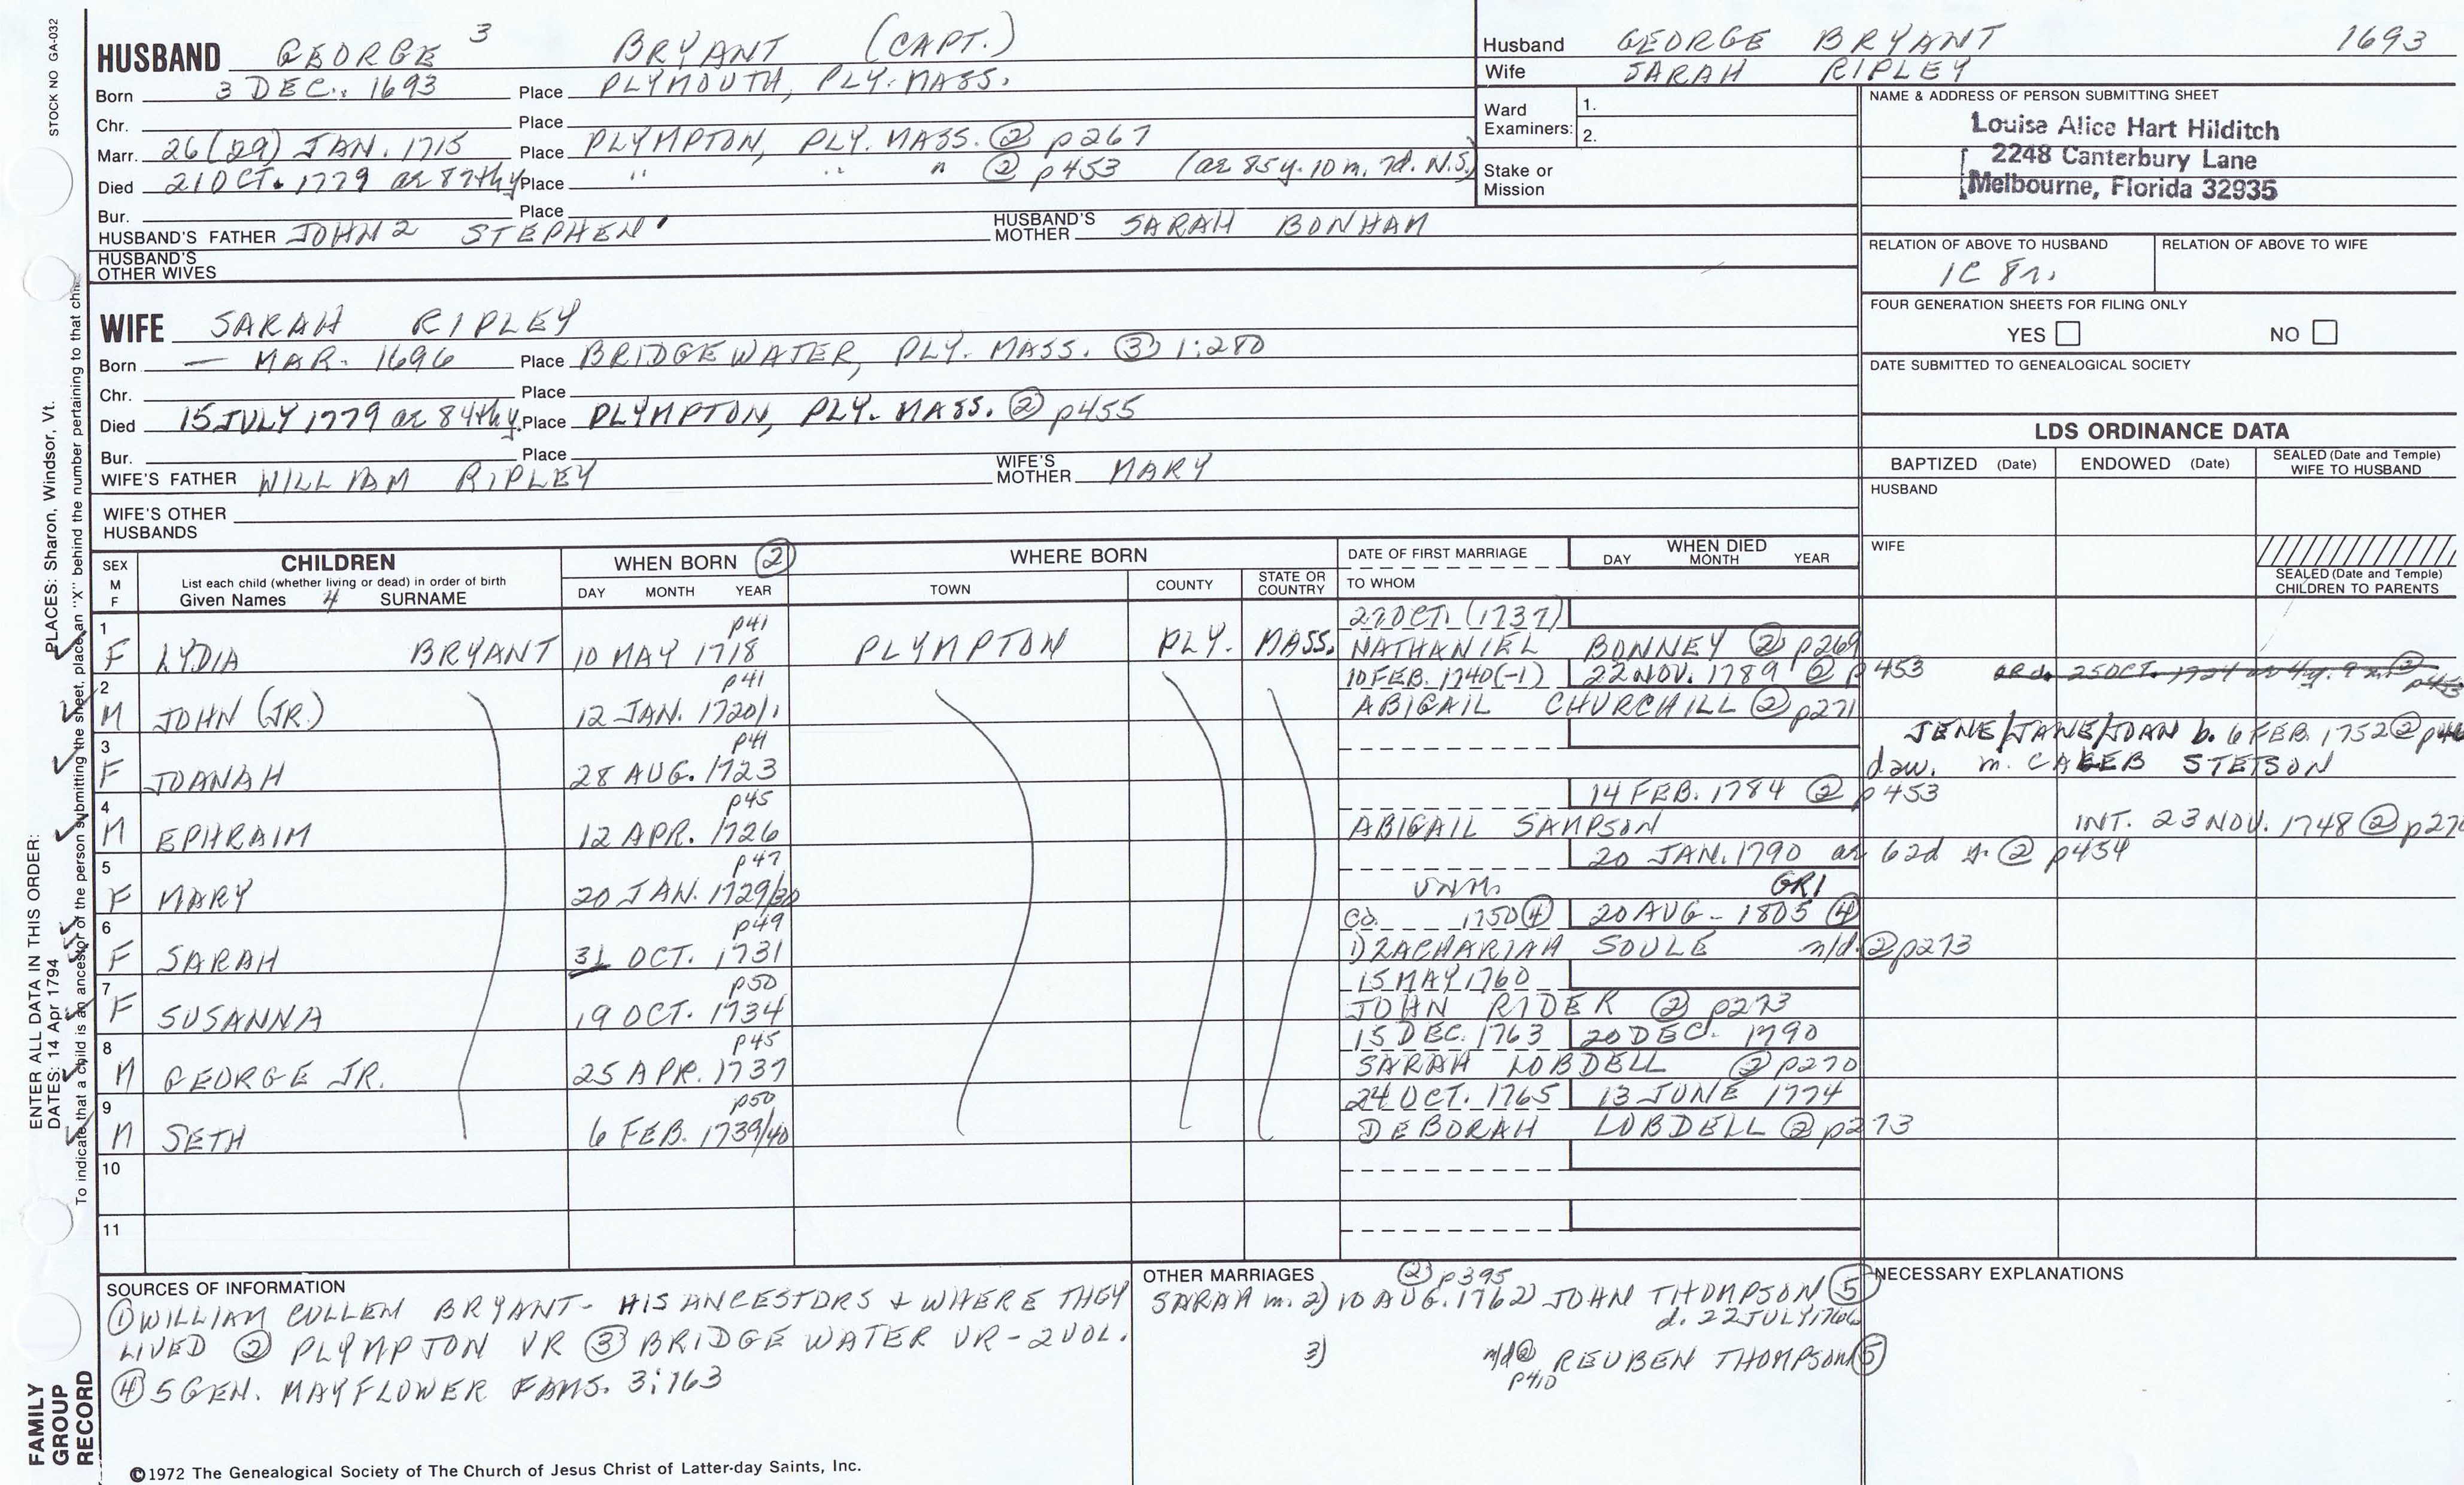 STOCK NO GA-032
HUSBAND GEORGE 3 BRYANT (CAPT.)
Born 3 DEC. 1693 Place PLYMOUTH, PLY. MASS.
Chr. Place
Marr. 26 (29) JAN. 1715 Place PLYMPTON, PLY. MASS. ② p267
Died 21 OCT. 1779 ae 87thy Place " " " ② p453 (ae 85y. 10 m. 7d. N.S.)
Bur. Place
HUSBAND'S FATHER JOHN 2 STEPHEN ' HUSBAND'S MOTHER SARAH BONHAM
HUSBAND'S OTHER WIVES
Husband GEORGE BRYANT 1693
Wife SARAH RIPLEY
Ward Examiners: 1.
2.
Stake or Mission
NAME & ADDRESS OF PERSON SUBMITTING SHEET
Louise Alice Hart Hilditch
2248 Canterbury Lane
Melbourne, Florida 32935
RELATION OF ABOVE TO HUSBAND RELATION OF ABOVE TO WIFE
1C 8r.
FOUR GENERATION SHEETS FOR FILING ONLY
YES NO
DATE SUBMITTED TO GENEALOGICAL SOCIETY
WIFE SARAH RIPLEY
Born — MAR. 1696 Place BRIDGEWATER, PLY. MASS. ③ 1:280
Chr. Place
Died 15 JULY 1779 ae 84thy. Place PLYMPTON, PLY. MASS. ② p455
Bur. Place
WIFE'S FATHER WILLIAM RIPLEY WIFE'S MOTHER MARY
WIFE'S OTHER HUSBANDS
LDS ORDINANCE DATA
BAPTIZED (Date) ENDOWED (Date) SEALED (Date and Temple) WIFE TO HUSBAND
HUSBAND
WIFE
SEALED (Date and Temple) CHILDREN TO PARENTS
SEX M F CHILDREN WHEN BORN ② WHERE BORN DATE OF FIRST MARRIAGE WHEN DIED
List each child (whether living or dead) in order of birth
Given Names 4 SURNAME DAY MONTH YEAR TOWN COUNTY STATE OR COUNTRY TO WHOM DAY MONTH YEAR
1 p41 27 OCT. (1737)
F LYDIA BRYANT 10 MAY 1718 PLYMPTON PLY. MASS. NATHANIEL BONNEY ② p269
2 p41 10 FEB. 1740(-1) 22 NOV. 1789 ② p453 OR d. 25 OCT. 1724 ae 4y. 9 m ② p453
M JOHN (JR.) 12 JAN. 1720/1 ABIGAIL CHURCHILL ② p271
3 p41 JENE/JANE/JOAN b. 6 FEB. 1752 ②
F JOANAH 28 AUG. 1723 daw. m. CALEB STETSON
4 p45 14 FEB. 1784 ② p453
M EPHRAIM 12 APR. 1726 ABIGAIL SAMPSON INT. 23 NOV. 1748 ②
5 p47 20 JAN. 1790 ae 62d y. ② p454
F MARY 20 JAN. 1729/30 UNM. GR1
6 p49 CO. 1750 ④ 20 AUG - 1805 ④
F SARAH 31 OCT. 1731 1) ZACHARIAH SOULE n/d. ② p273
7 p50 15 MAY 1760
F SUSANNA 19 OCT. 1734 JOHN RIDER ② p273
8 p45 15 DEC. 1763 20 DEC. 1790
M GEORGE JR. 25 APR. 1737 SARAH LOBDELL ② p270
9 p50 24 OCT. 1765 13 JUNE 1774
M SETH 6 FEB. 1739/40 DEBORAH LOBDELL ② p273
10
11
SOURCES OF INFORMATION
① WILLIAM CULLEN BRYANT - HIS ANCESTORS & WHERE THEY
LIVED ② PLYMPTON VR ③ BRIDGE WATER VR - 2 VOL.
④ 5 GEN. MAYFLOWER FAMS. 3:163
OTHER MARRIAGES ② p395
SARAH m. 2) 10 AUG. 1762) JOHN THOMPSON ⑤
d. 22 JULY 1766
3) n/d ② p410 REUBEN THOMPSON ⑤
NECESSARY EXPLANATIONS
©1972 The Genealogical Society of The Church of Jesus Christ of Latter-day Saints, Inc.
FAMILY GROUP RECORD
ENTER ALL DATA IN THIS ORDER:
DATES: 14 Apr 1794
PLACES: Sharon, Windsor, Vt.
To indicate that a child is an ancestor of the person submitting the sheet, place an "X" behind the number pertaining to that